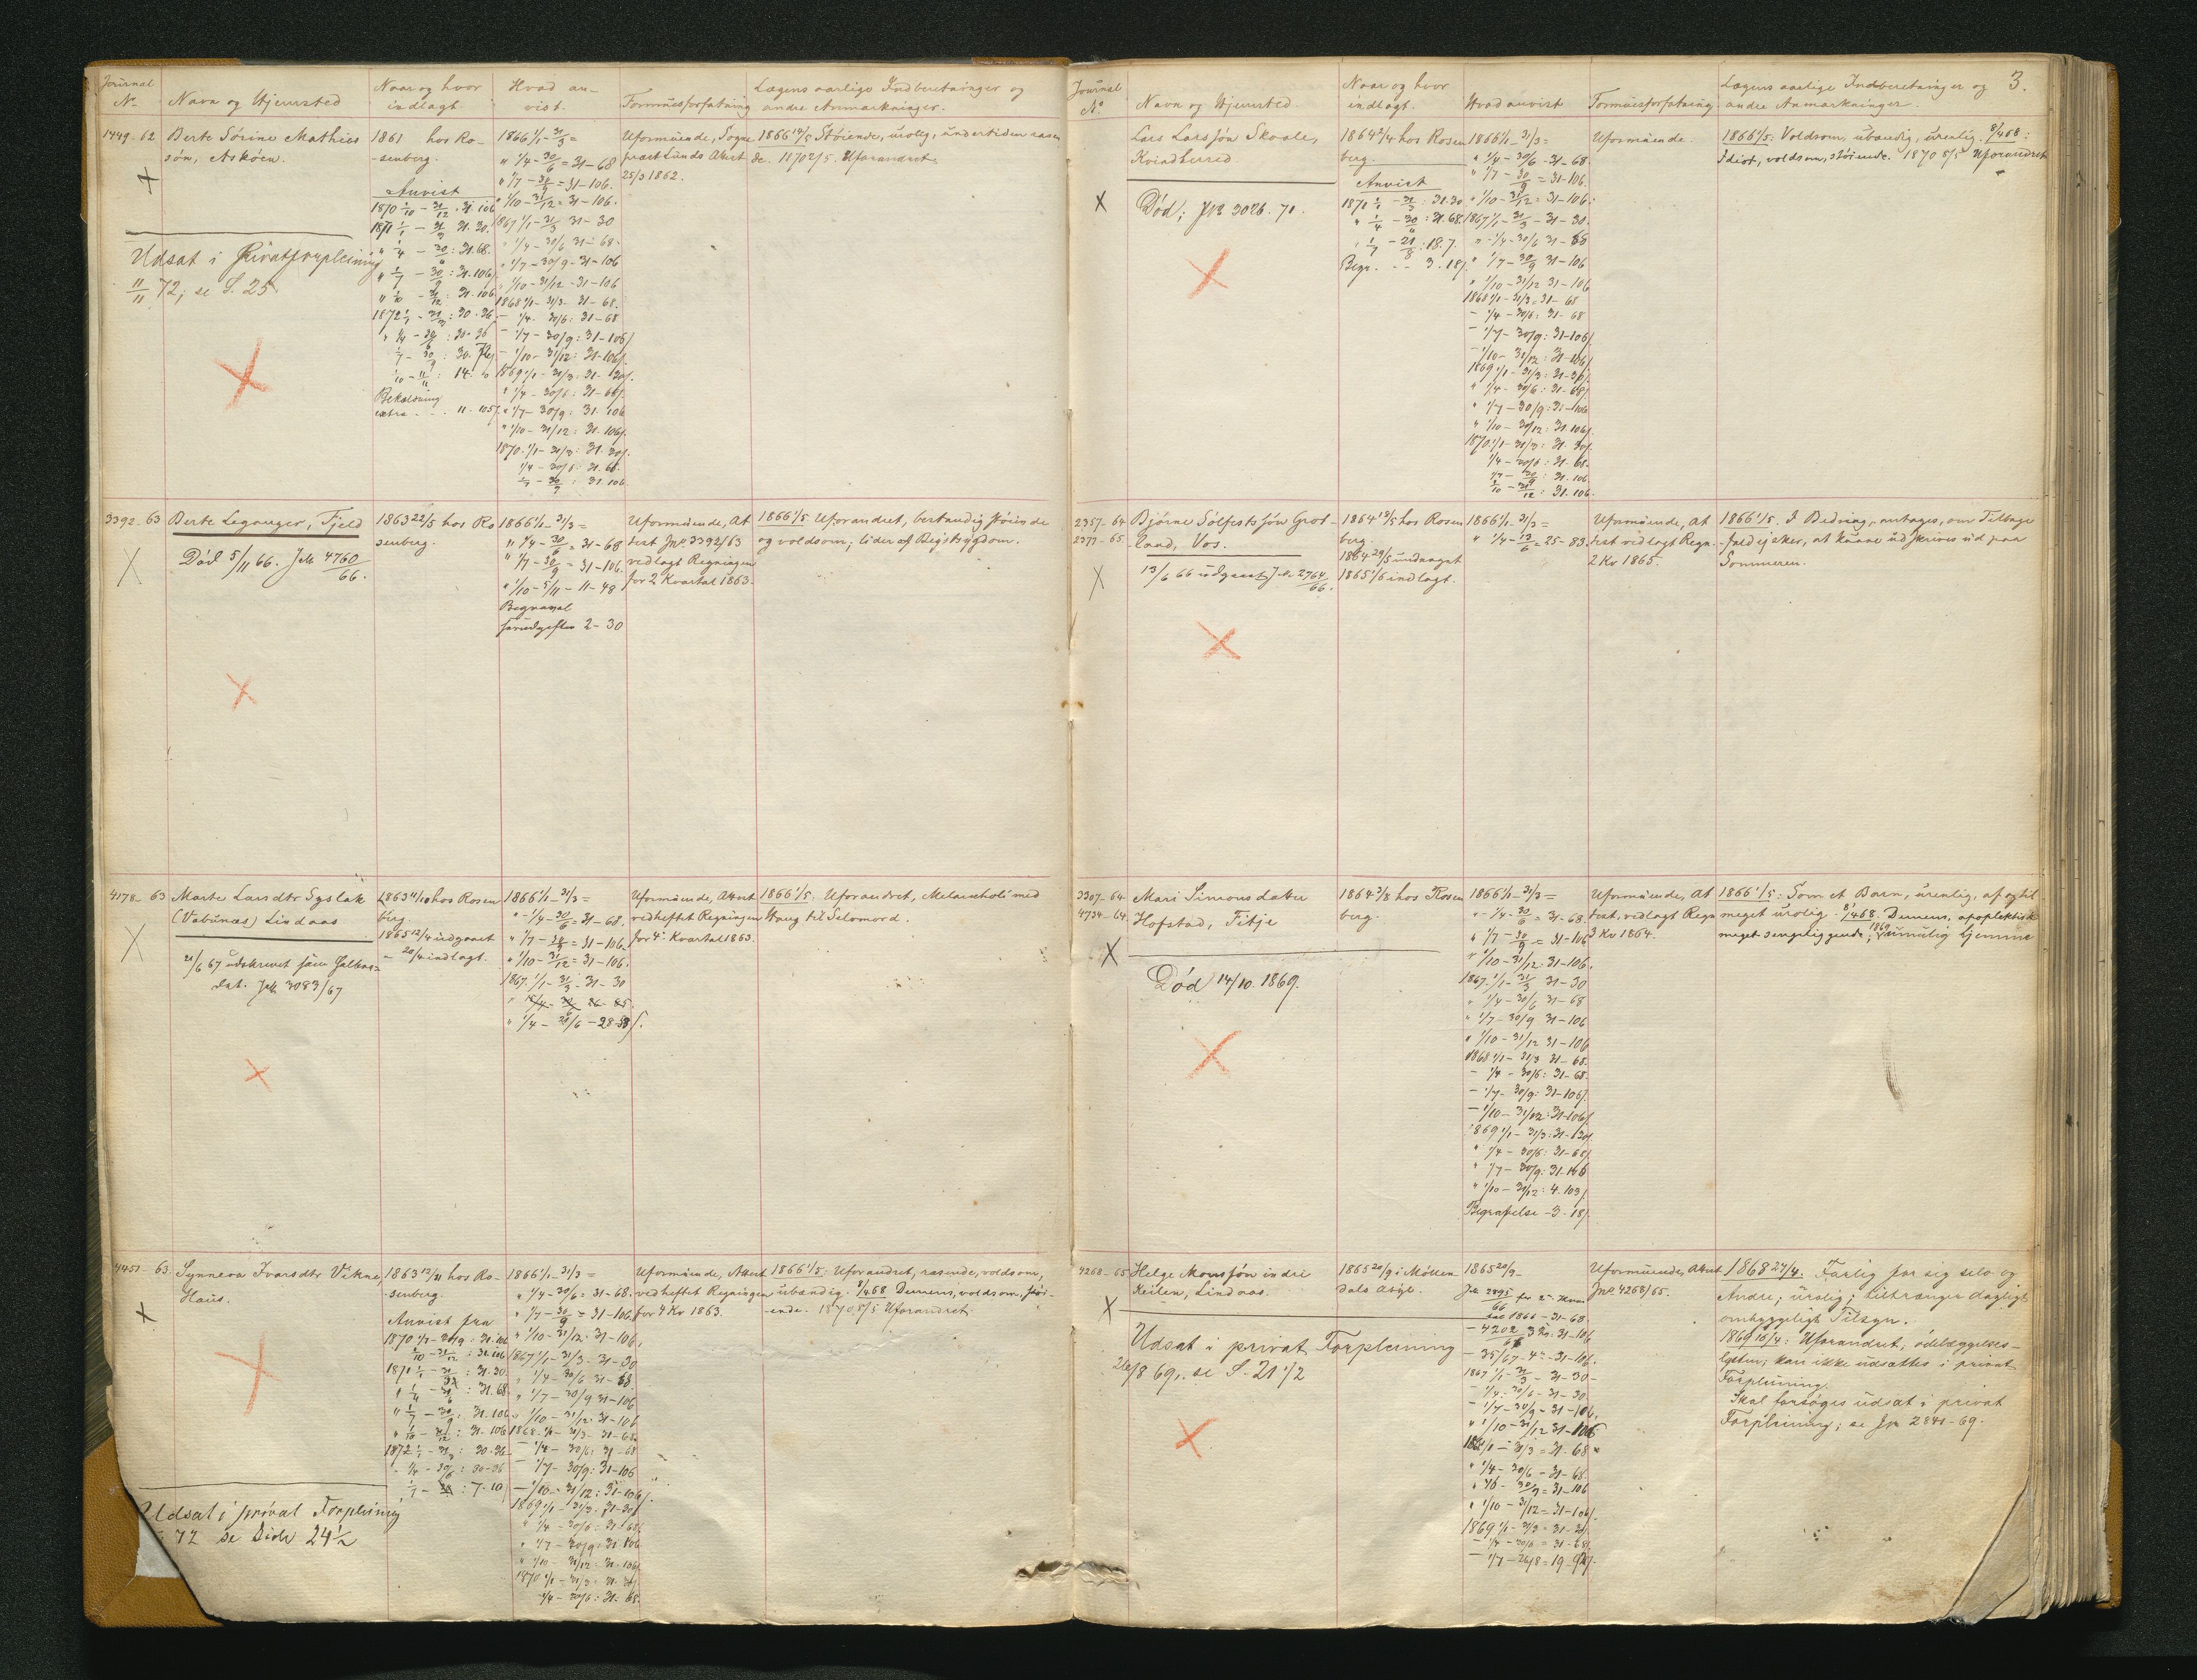 Journal
No
Navn og Hjemsted
Naar og hvor
indlagt.
Hvad an-
vist.
Formuesforfatning
Lægens aarlige Indberetninger og
andre Anmærkninger.
1449-62
Berte Sørine Mathies
søn, Askøen.
X
Udsat i Privatforpleining
11/11 72, se S. 25
1861 hos Ro-
senberg.
Anvist
1870 1/10 - 31/12 . 31. 106
1871 1/1 - 31/3 31. 30.
" 1/4 - 30/6 : 31. 68.
" 1/7 - 30/9 : 31. 106
" 1/10 - 31/12 : 31. 106
1872 1/1 - 31/3 : 30. 36
" 1/4 - 30/6 : 30-36
1/7 - 30/9 : 30.
1/10 - 11/11 : 14.
Bekostning
extra - - - 11. 105
1866 1/1 - 31/3 =
" 1/4 - 30/6 = 31-68
" 1/7 - 30/9 = 31-106.
" 1/10 - 31/12 = 31-106.
1867 1/1 - 31/3 31-30
" 1/4 - 30/6 31-68.
" 1/7 - 30/9 - 31-106
" 1/10 - 31/12 - 31-106
1868 1/1 - 31/3 - 31-68.
- 1/4 - 30/6 : 31-68
- 1/7 - 30/9 : 31-106
- 1/10 - 31/12 : 31-106
1869 1/1 - 31/3 : 31-30
" 1/4 - 30/6 : 31-68
" 1/7 - 30/9 : 31. 106
" 1/10 - 31/12 : 31. 106
1870. 1/1 - 31/3 : 31. 30
1/4 - 30/6 : 31. 68.
1/7 - 30/9 : 31. 106
Uformuende, Sogne
præst Lunds Attest
25/3 1862.
1866 1/5 Støiende, urolig, undertiden rasen
de. 1870 2/5. Uforandret.
3392-63
Berte Leganger, Fjeld
X
Død 5/11 66. JN 4760/66.
1863 22/5 hos Ro
senberg.
1866 1/1 - 31/3 =
" 1/4 - 30/6 = 31-68
" 1/7 - 30/9 = 31-106.
" 1/10 - 5/11 - 11-48
Begravel
sesudgifter 2-30
Uformuende, At
test JNo 3392/63
vedlagt Regningen
for 2 Kvartal 1863.
1866 1/5 Uforandret, bestandig støiende
og voldsom; lider af Brystsygdom.
4178-63
Marte Larsdtr Syslak
(Vabunæs) Lindaas
X
21/6 67 udskrevet som helbre-
det. JN 3083/67
1863 4/10 hos Rosen
berg.
1865 12/4 udgaaet
- 20/4 indlagt.
1866 1/1 - 31/3 =
" 1/4 - 30/6 = 31-68.
" 1/7 - 30/9 = 31-106.
" 1/10 - 31/12 = 31-106.
1867. 1/1 - 31/3 - 31-30
" 1/4 - 21/6 - 28-
Uformuende, Attest
vedheftet Regningen
for 4e Kvartal 1863.
1866 1/5. Uforandret, Melancholi med
Hang til Selvmord.
4451-63.
Synneva Ivarsdtr Vikne,
Haus.
X
Udsat i privat Forpleining
72 se Side 24½
1863 12/11 hos Ro-
senberg.
Anvist fra
1870 1/7 - 30/9 : 31. 106
1/10 - 31/12 : 31. 106
1871 1/1 - 31/3 : 31. 30.
" 1/4 - 30/6 : 31. 68.
" 1/7 - 30/9 : 31. 106
" 1/10 - 31/12 : 31. 106
1872 1/1 - 31/3 : 30. 36
- 1/4 - 30/6 : 30-36
1/7 - : 7. 10
1866 1/1 - 31/3 =
" 1/4 - 30/6 = 31-68.
" 1/7 - 30/9 = 31-106
" 1/10 - 31/12 : 31-106,
1867 1/1 - 31/3 - 31-30
" 1/4 - 30/6 31-68
" 1/7 - 30/9 31-106
" 1/10 - 31/12 31-106
1868. 1/1 - 31/3 - 31-68.
- 1/4 - 30/6 : 31-68
- 1/7 - 30/9 : 31-106
- 1/10 - 31/12 : 31-106
1869 1/1 - 31/3 - 31-30
" 1/4 - 30/6 : 31-68
" 1/7 - 30/9 : 31 106
" 1/10 - 31/12 : 31-106
1870 1/1 - 31/3 : 31. 30
1/4 - 30/6 : 31- 68.
Uformuende, Attest
vedheftet Regningen
for 4 Kv 1863.
1866 1/5. Uforandret, rasende, voldsom,
ubændig. 8/4 68 Demens, voldsom, støi-
ende. 1870 5/5 Uforandret.
3.
Journal
No
Navn og Hjemsted.
Naar og hvor
indlagt.
Hvad anvist
Formuesforfatning.
Lægens aarlige Indberetninger og
andre Anmærkninger.
Lars Larssøn Skaale,
Kvindherred
X
Død; JN 3026. 71.
1864 2/4 hos Rosen
berg.
Anvist
1871 1/1 - 31/3 : 31. 30
" 1/4 - 30/6 : 31. 68.
" 1/7 - 21/8 : 18. 7.
Begr. - - 3. 18
1866 1/1 - 31/3 =
" 1/4 - 30/6 - 31-68
" 1/7 - 30/9 = 31-106.
" 1/10 - 31/12 = 31-106.
1867 1/1 - 31/3 - 31-30.
" 1/4 - 30/6 31-68
" 1/7 - 30/9 31-106
" 1/10 - 31/12 31-106
1868 1/1 - 31/3 = 31-68
- 1/4 - 30/6 : 31-68
- 1/7 - 30/9 : 31-106
- 1/10 - 31/12 : 31-106
1869 1/1 - 31/3 : 31-30
" 1/4 - 30/6 : 31-68
" 1/7 - 30/9 : 31-106
" 1/10 - 31/12 : 31. 106
1870. 1/1 - 31/3 : 31. 30
1/4 - 30/6 : 31. 68.
1/7 - 30/9 : 31. 106
1/10 - 31/12 : 31. 106.
Uformuende.
1866 1/5. Voldsom, ubændig, urenlig. 8/4 68:
Idiot, voldsom, støiende. 1870 5/5 Uforandret
2357-64
2377-65.
Bjørne Sølfestssøn Grot-
land, Vos.
X
13/6 66 udgaaet JN 2764/66.
1864 18/5 hos Rosen
berg.
1864 29/5 undveget
1865 1/6 indlagt.
1866 1/1 - 31/3 =
" 1/4 - 13/6 = 25-83.
Uformuende, At
test vedlagt Regn.
2 Kv 1865.
1866 1/5. I Bedring, antages, om Tilbage
fald ej sker, at kunne udskrives ud paa
Sommeren.
3307-64
4734-64.
Mari Simonsdatter
Hofstad, Fitje
X
Død 14/10. 1869.
1864 3/8 hos Rosen
berg.
1866 1/1 - 31/3 =
" 1/4 - 30/6 = 31-68.
" 1/7 - 30/9 = 31-106
" 1/10 - 31/12 : 31-106.
1867. 1/1 - 31/3 31-30
" 1/4 - 30/6 31-68
" 1/7 - 30/9 31-106
" 1/10 - 31/12 31-106
1868 1/1 - 31/3 31-68.
- 1/4 - 30/6 : 31-68.
- 1/7 - 30/9 : 31-106
- 1/10 - 31/12 : 31-106
1869 1/1 - 31/3 : 31-30
" 1/4 - 30/6 : 31-68
" 1/7 - 30/9 : 31-106
" 1/10 - 31/12 : 4. 103
Begravelse - 3. 18
Uformuende, At
test, vedlagt Regn
3 Kv 1864.
1866 1/5: Som et Barn, urenlig, af og til
meget urolig. 8/4 68. Demens, apoplektisk
meget sengeliggende; 1869 umulig hjemme
4268-65
Helge Monssøn indre
Keilen, Lindaas.
X
Udsat i privat Forpleining
26/8 69, se S. 21 1/2
1865 20/9 i Møllen
dals Asyl.
1865 20/9 -
JN 2895/66 for 2
1866 - 31-68
- 4202 3 : 31-106
- 35/67 - 4 - 31-106.
1867 1/1 - 31/3 - 31-30 -
- 1/4 : 30/6 - 31-30
- 1/7 - 30/9 - 31-106,
" 1/10 - 31/12 31-106
1868 1/1 - 31/3 = 31. 68
" 1/4 - 30/6 - 31-68.
" - 30/9 = 31-106
" 1/10 - 31/12 = 31-106
1869 1/1 - 31/3 = 31-30
- 1/4 - 30/6 = 31-68
- 1/7 - 26/8 = 19-
Uformuende, Attest
JNo 4268/65.
1868 27/4. Farlig for sig selv og
Andre; urolig; tiltrænger dagligt
omhyggeligt Tilsyn.
1869 16/4: Uforandret, ødelæggelses-
lysten; kan ikke udsættes i privat
Forpleining.
Skal forsøges udsat i privat
Forpleining; se JN 2841-69.